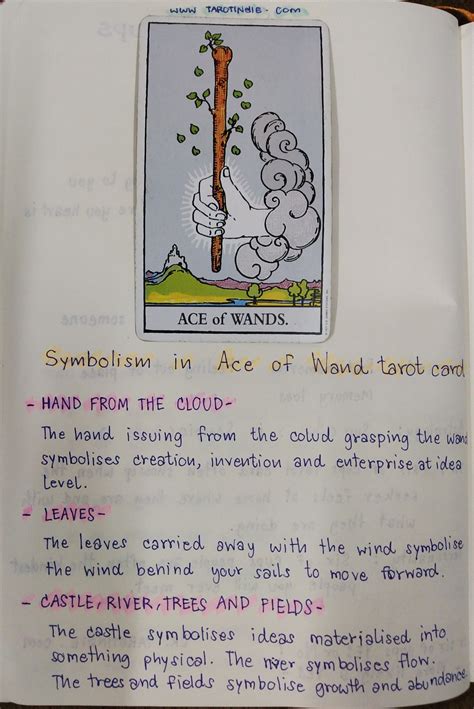 WWW TAROTINDIE . COM
ACE of WANDS.
Symbolism in Ace of Wand tarot card
- HAND FROM THE CLOUD-
The hand issuing from the colud grasping the wand
symbolises creation, invention and enterprise at idea
level.
- LEAVES-
The leaves carried away with the wind symbolise
the wind behind your sails to move forward.
- CASTLE, RIVER, TREES AND FIELDS-
The castle symbolises ideas materialised into
something physical. The river symbolises flow.
The trees and fields symbolise growth and abundance.